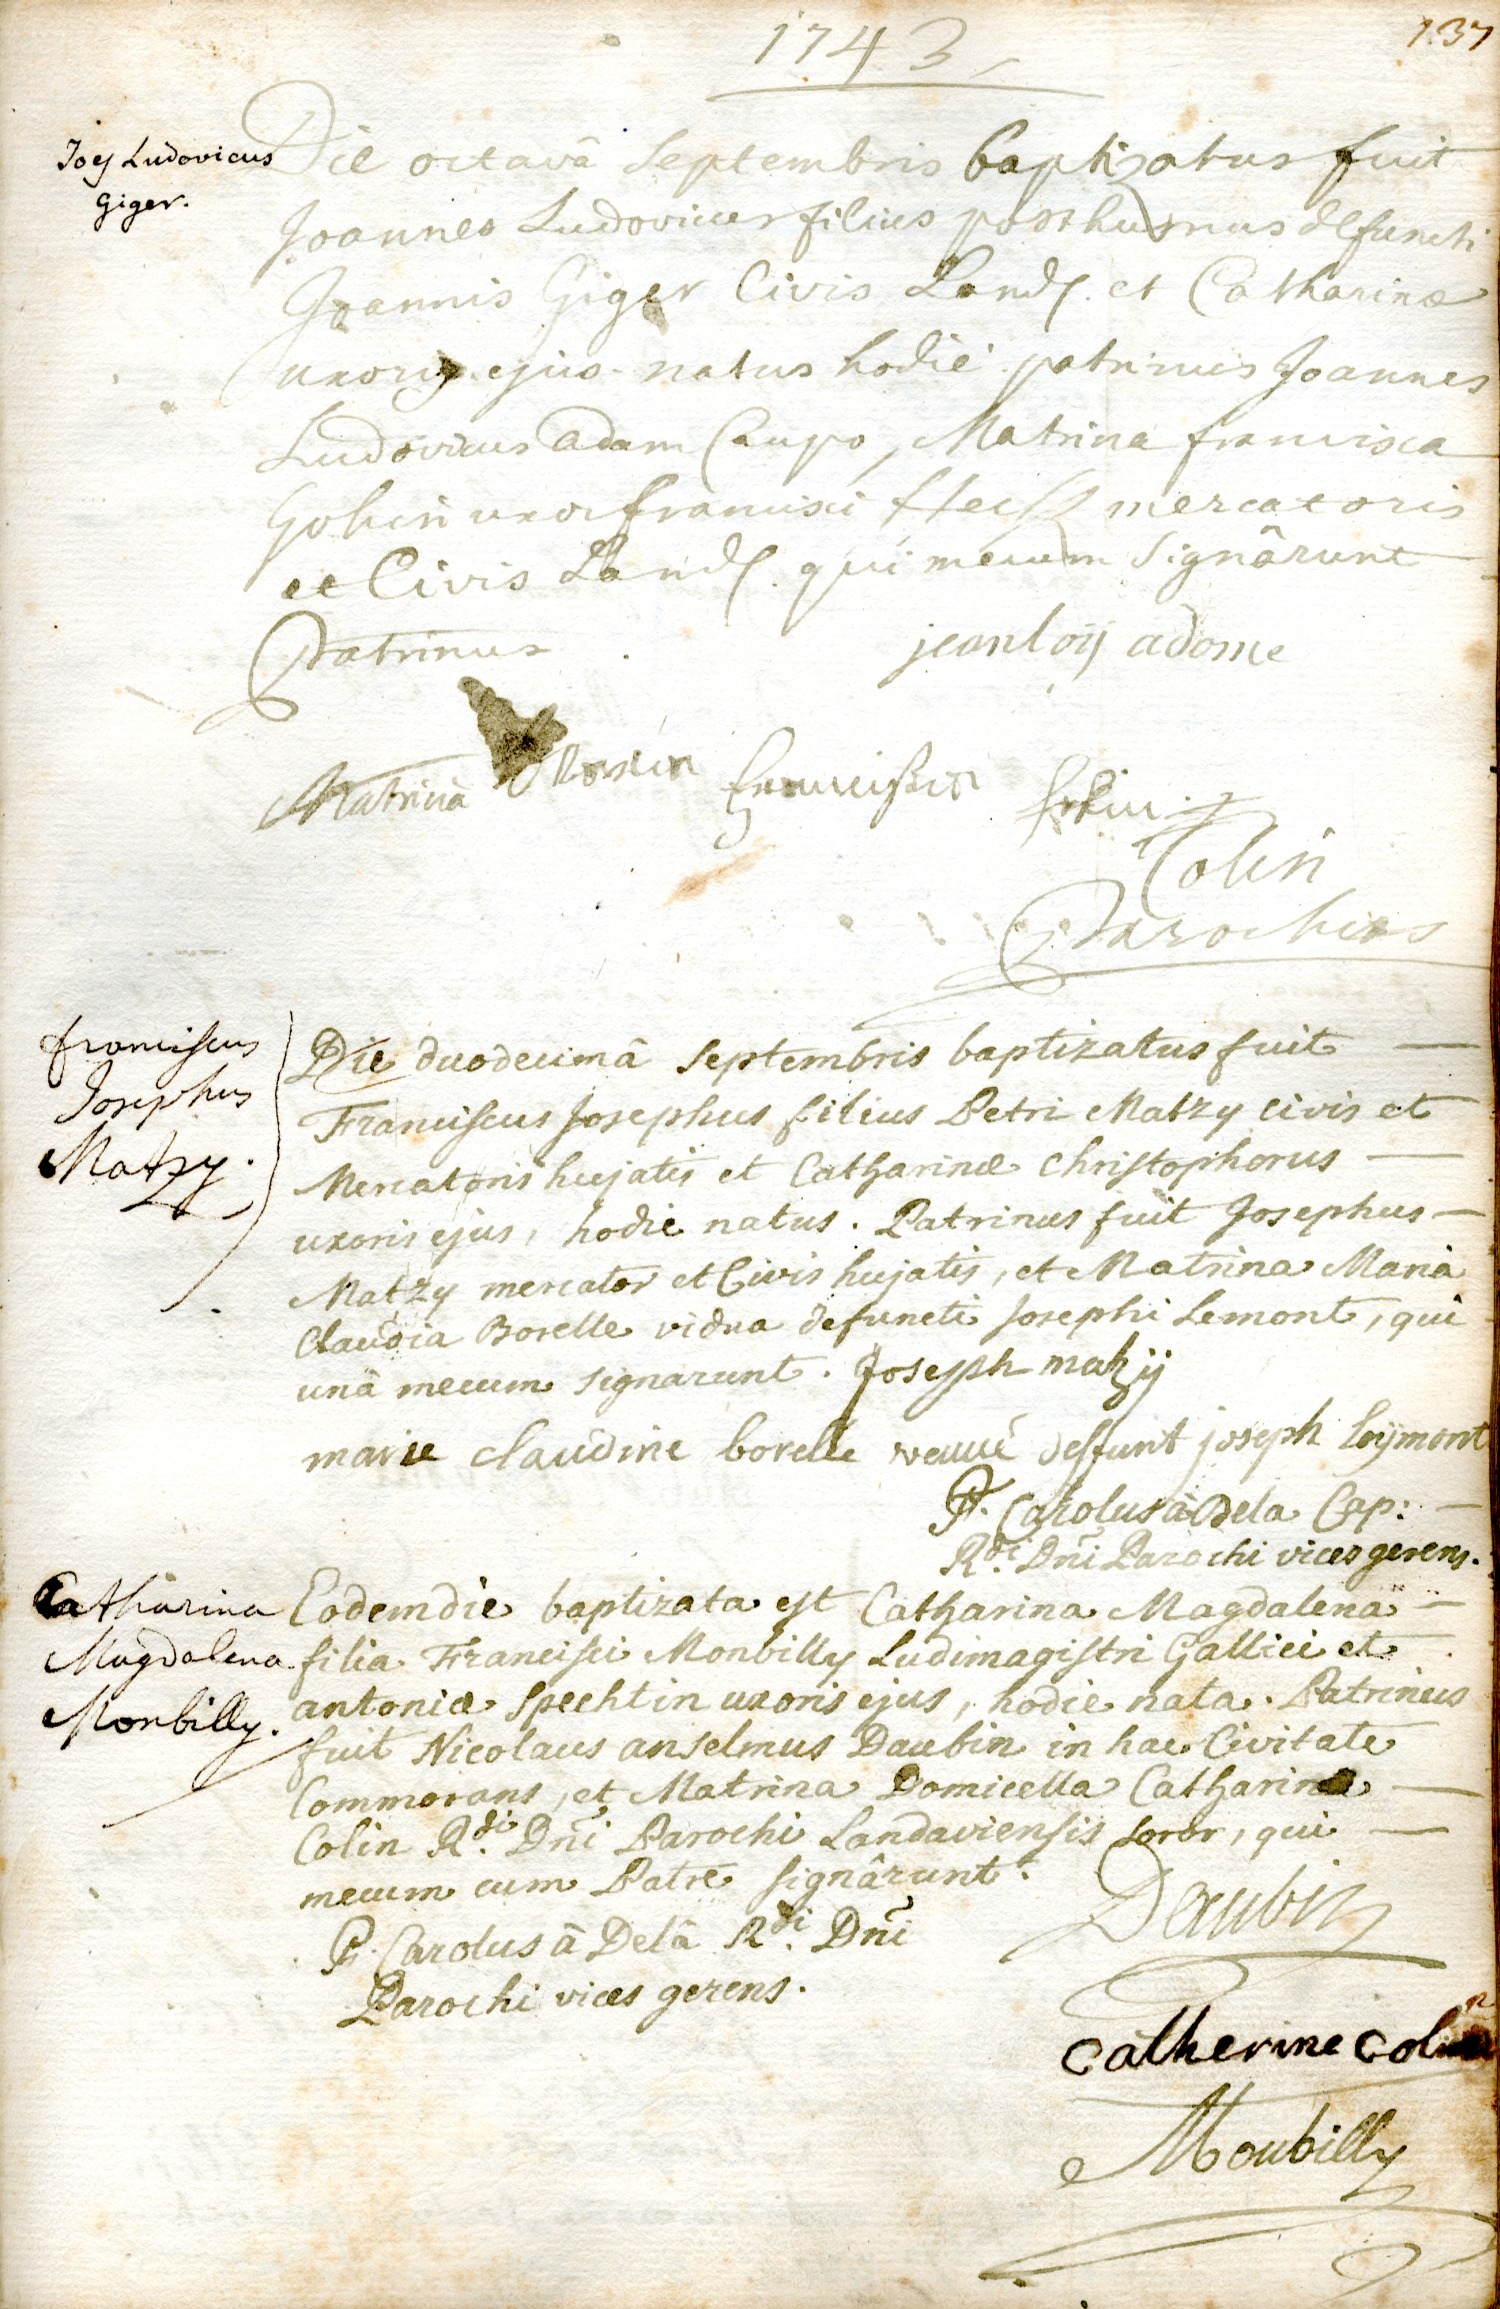 1743
137
Joes Ludovicus
Giger.
Die octavâ Septembris baptizatus fuit
Joannes Ludovicus filius posthumus defuncti
Joannis Giger Civis Land. et Catharinæ
uxoris ejus. natus hodie. patrinus Joannes
Ludovicus adam Caupo, Matrina francisca
Gohin uxor francisci mercatoris
et Civis Land. qui mecum Signârunt
Patrinus jean loij adame
Matrina
Colin
Parochus
franciscus
Josephus
Matzy.
Die duodecimâ Septembris baptizatus fuit —
Franciscus Josephus filius Petri Matzy civis et —
Mercatoris hujatis et Catharinæ Christophorus —
uxoris ejus, hodie natus. Patrinus fuit Josephus —
Matzy mercator et Civis hujatis, et Matrina Maria
Claudia Borelle vidua defuncti Josephi Lemont, qui
unâ mecum signarunt. Joseph matzij
marie claudine borelle veuve deffunt joseph loijmont
P. Carolus à Dela Cap: —
R.di Dni Parochi vices gerens.
Catharina
Magdalena
Monbilly.
Eodem die baptizata est Catharina Magdalena —
filia Francisci Monbilly Ludimagistri Gallici et
antoniæ Spechtin uxoris ejus, hodie nata. Patrinus
fuit Nicolaus anselmus Daubin in hac Civitate
Commorans, et Matrina Domicella Catharina —
Colin R.di Dni Parochi Landaviensis soror, qui —
mecum cum Patre signârunt.
Daubin
P. Carolus à Delâ R.di Dni
Parochi vices gerens.
Catherine Colin
Monbilly